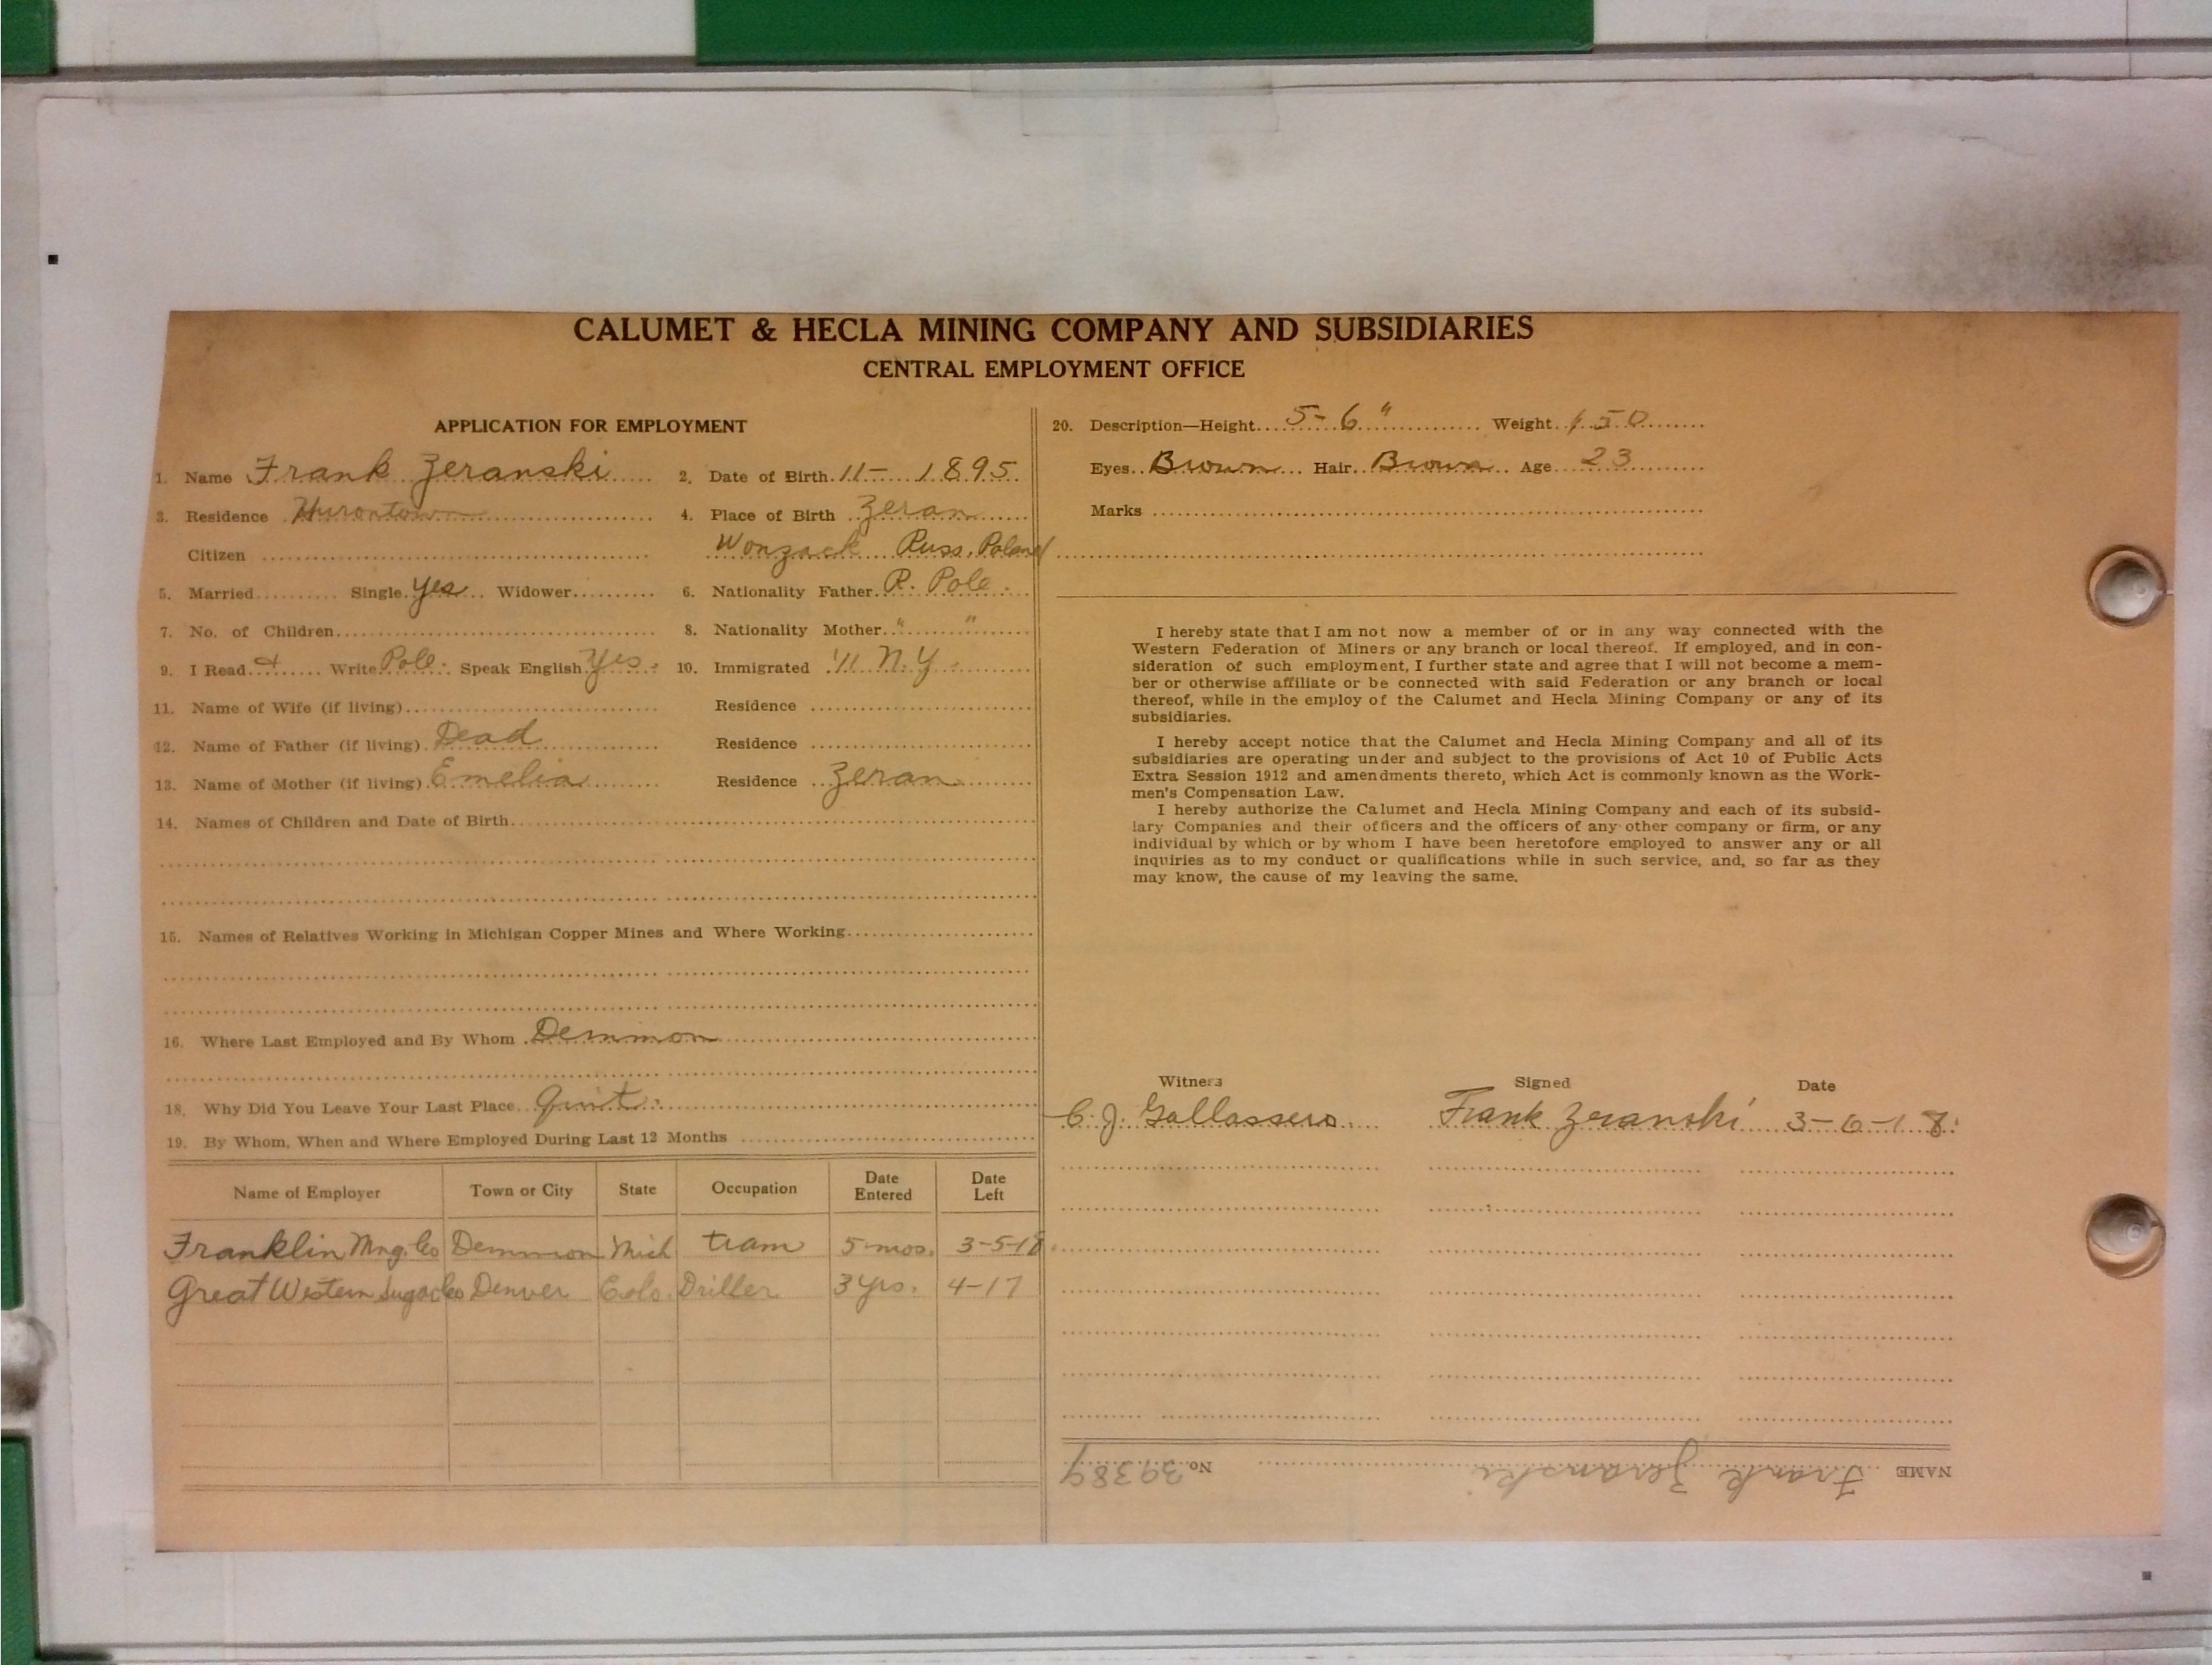 CALUMET & HECLA MINING COMPANY AND SUBSIDIARIES
CENTRAL EMPLOYMENT OFFICE
APPLICATION FOR EMPLOYMENT
1. Name Frank Zeranski
2. Date of Birth 11- 1895
3. Residence Hurontown
4. Place of Birth Zeran
Citizen
Wonzack Russ. Poland
5. Married Single yes Widower
6. Nationality Father R. Pole
7. No. of Children
8. Nationality Mother " "
9. I Read & Write Pole. Speak English Yes.
10. Immigrated '11 N.Y.
11. Name of Wife (if living)
Residence
12. Name of Father (if living) Dead
Residence
13. Name of Mother (if living) Emelia
Residence Zeran
14. Names of Children and Date of Birth
15. Names of Relatives Working in Michigan Copper Mines and Where Working
16. Where Last Employed and By Whom Demmon
18. Why Did You Leave Your Last Place Quit.
19. By Whom, When and Where Employed During Last 12 Months
Name of Employer Town or City State Occupation Date Entered Date Left
Franklin Mng. Co Demmon Mich tram 5 mos. 3-5-18
Great Western Sugar Co Denver Colo. Driller 3 yrs. 4-17
20. Description—Height 5-6" Weight 150
Eyes Brown Hair Brown Age 23
Marks
I hereby state that I am not now a member of or in any way connected with the
Western Federation of Miners or any branch or local thereof. If employed, and in con-
sideration of such employment, I further state and agree that I will not become a mem-
ber or otherwise affiliate or be connected with said Federation or any branch or local
thereof, while in the employ of the Calumet and Hecla Mining Company or any of its
subsidiaries.
I hereby accept notice that the Calumet and Hecla Mining Company and all of its
subsidiaries are operating under and subject to the provisions of Act 10 of Public Acts
Extra Session 1912 and amendments thereto, which Act is commonly known as the Work-
men's Compensation Law.
I hereby authorize the Calumet and Hecla Mining Company and each of its subsid-
iary Companies and their officers and the officers of any other company or firm, or any
individual by which or by whom I have been heretofore employed to answer any or all
inquiries as to my conduct or qualifications while in such service, and, so far as they
may know, the cause of my leaving the same.
Witness Signed Date
C. J. Gallassero. Frank Zeranski 3-6-18.
NAME Frank Zeranski No. 39389